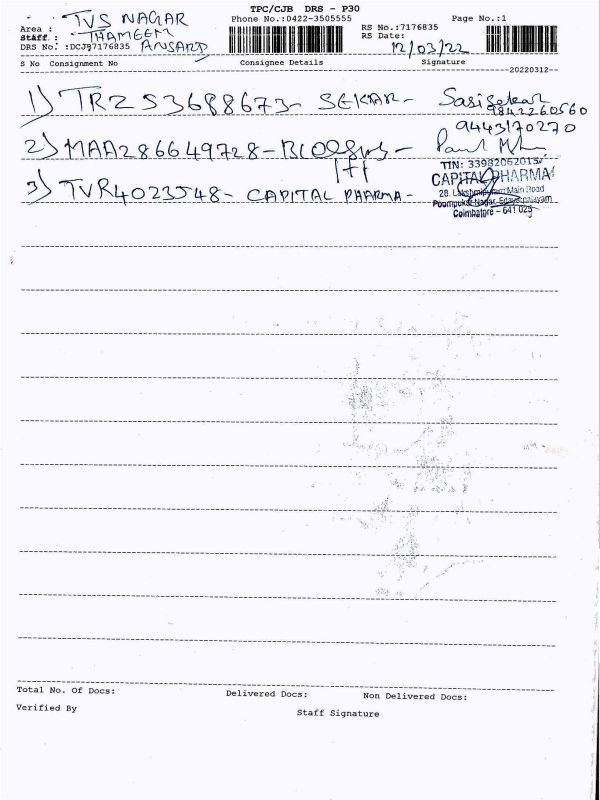 TPC/CJB DRS - P30
Area : TVS NAGAR
Phone No.:0422-3505555
Page No.:1
Staff : THAMEEM ANSARI
RS No.:7176835
DRS No. :DCJB7176835
RS Date: 12/03/22
S No Consignment No Consignee Details Signature
20220312
1) TRZ53688673- SEKAR- Sasisekar
9842260560
9443170270
2) MAA286649728-
3) TVR4023548- CAPITAL PHARMA-
TIN: 33982062013
CAPITAL PHARMA
28, Lakshmipuram Main Road
Poompukar Nagar,
Coimbatore - 641 025
Total No. Of Docs: Delivered Docs: Non Delivered Docs:
Verified By Staff Signature